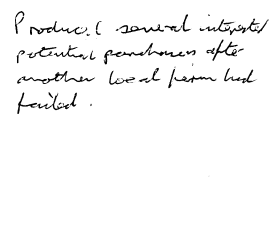 Produced several interested
potential purchasers after
another local firm had
failed.